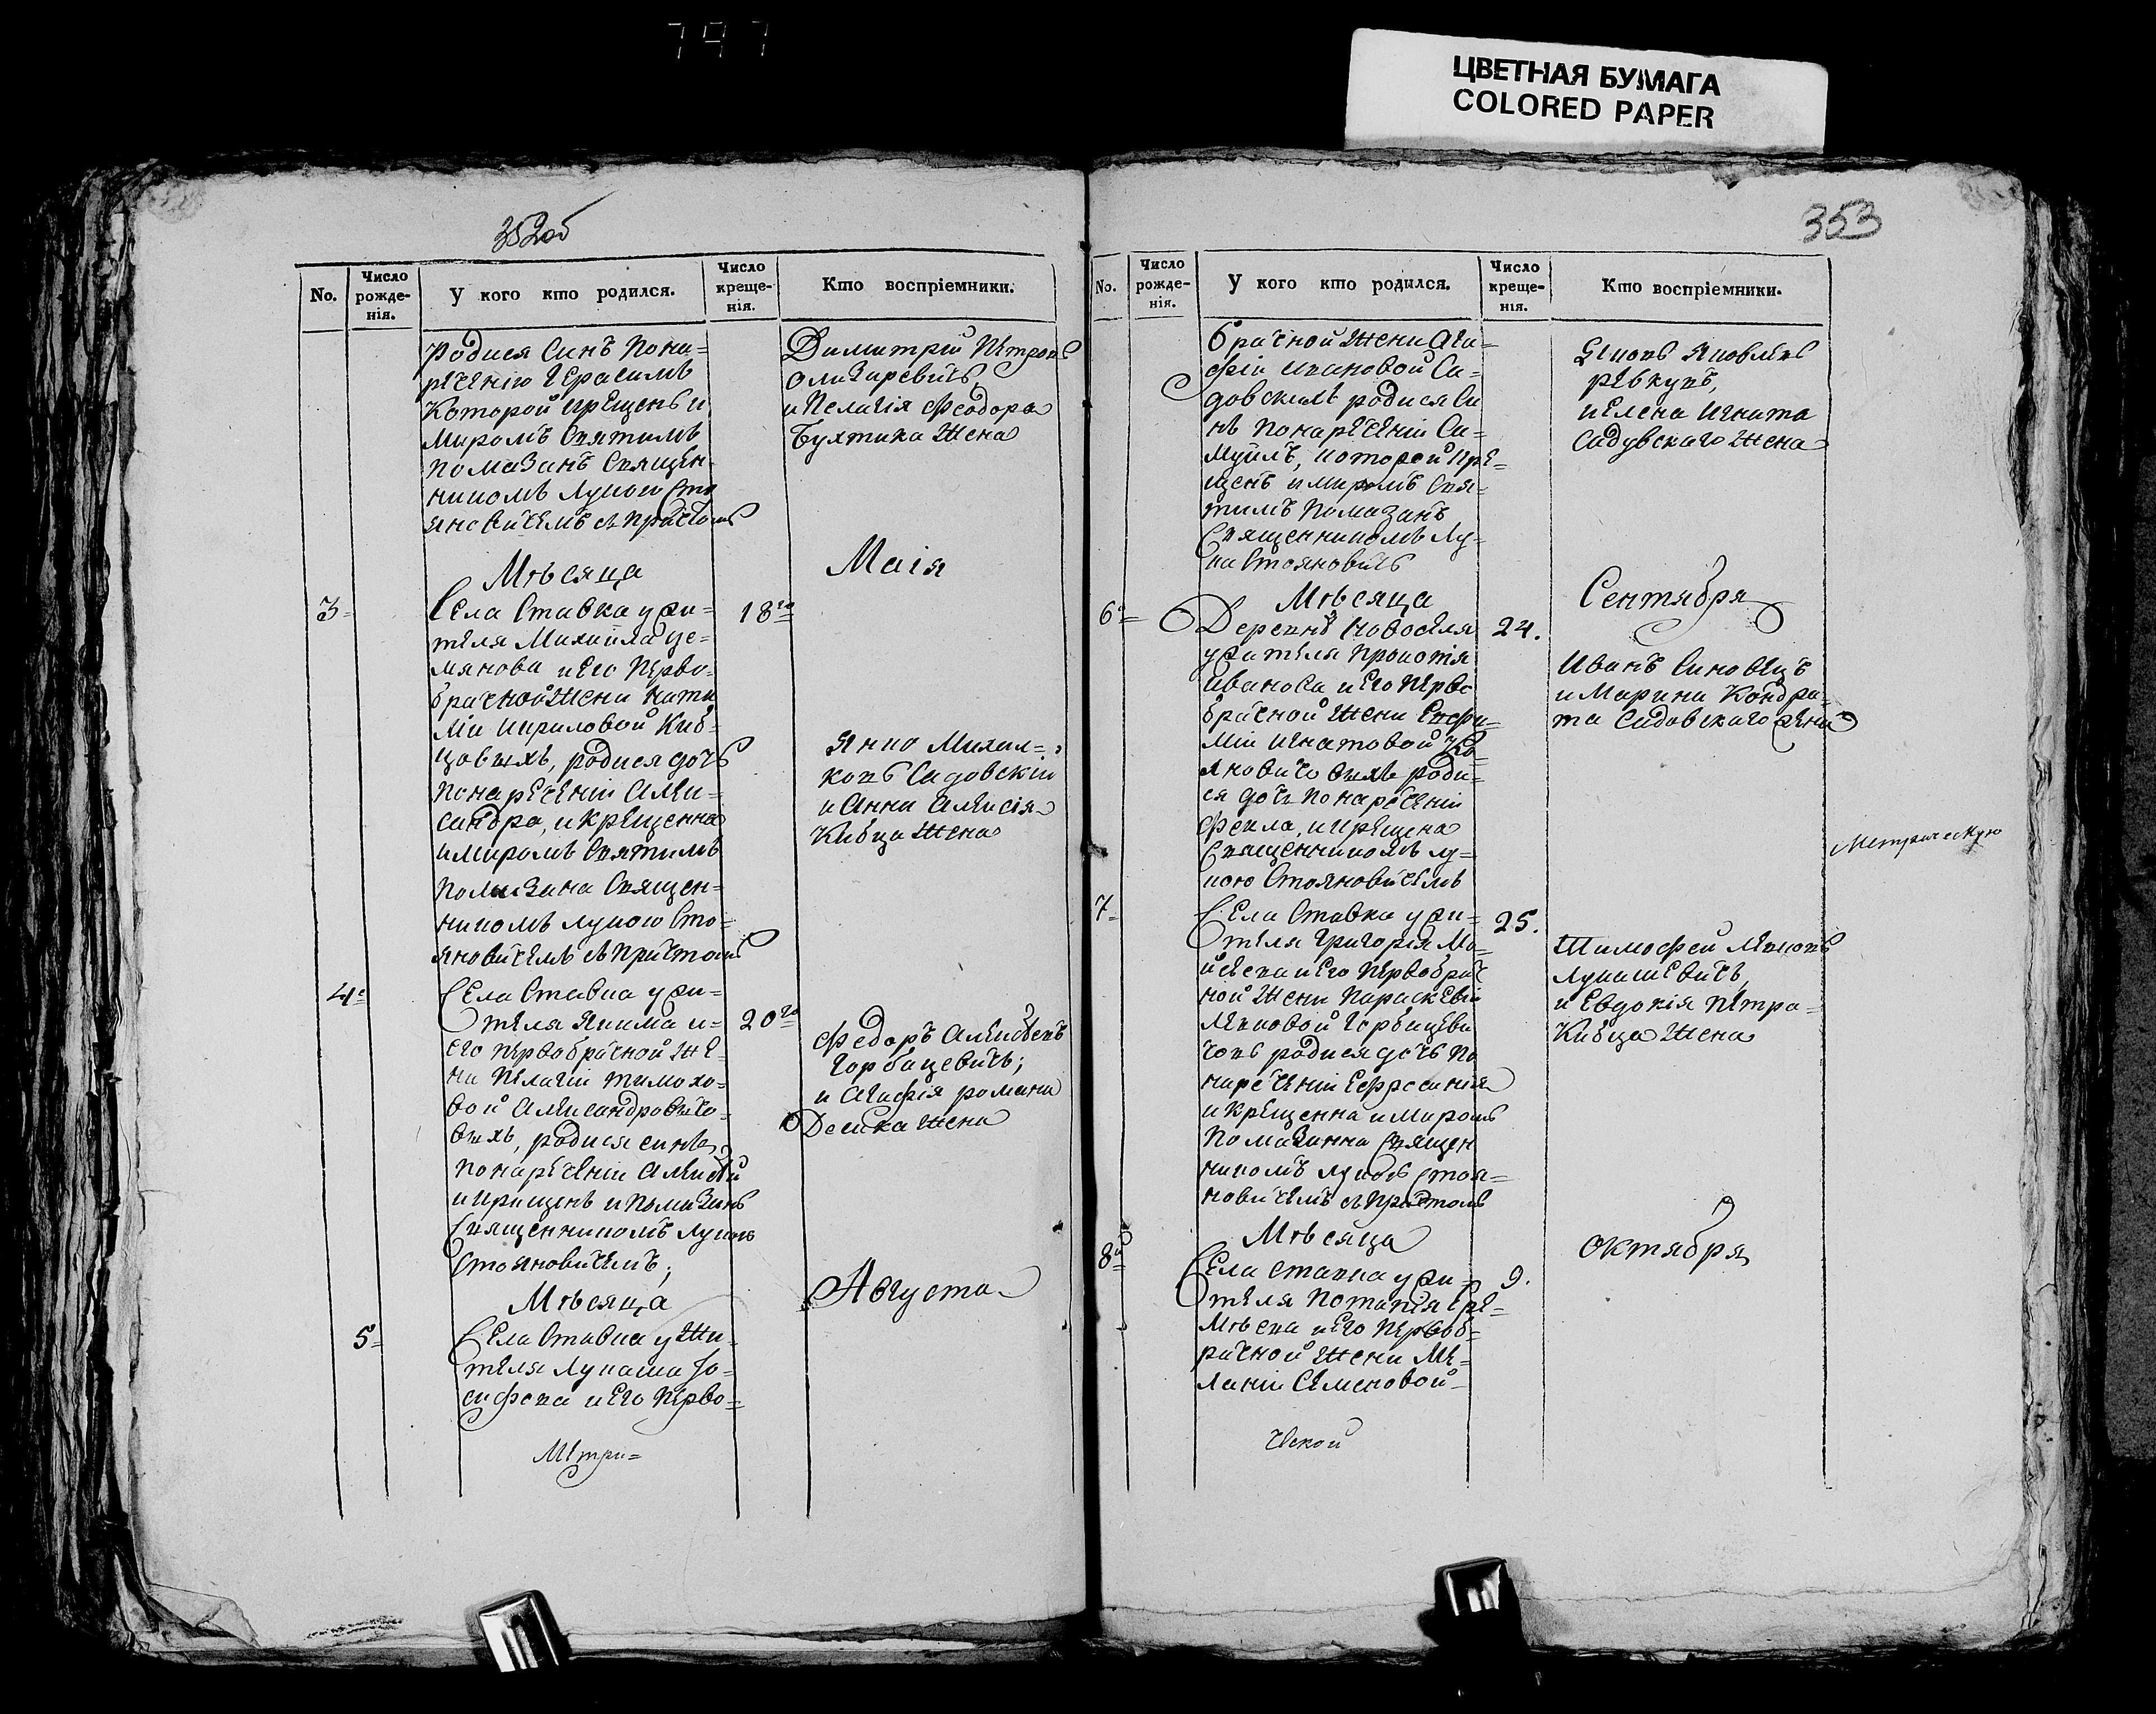 797
ЦВЕТНАЯ БУМАГА
COLORED PAPER
352об
No.
Число рожде-нія.
У кого кто родился.
Число креще-нія.
Кто воспріемники.
Родися Синъ пона=
речению Герасимъ
Которой крещенъ и
Миромъ Святимъ
помазанъ Священ-
никомъ Лукою Сто
яновичемъ с причтомъ
Димитрій Петровъ
Олизаревичъ,
и Пелагія Феодора
Бухтика Жена
Мѣсяца
Маія
3=
Села Ставка у жи=
теля Михайла Де=
мянова и Его Перво-
брачной Жени Ната
лии Кириловой Киб=
цовыхъ, родися дочъ
понаречении Алек=
сандра, и Крещенна
и Миромъ Святимъ
помазана Священ=
никомъ Лукою Сто=
яновичемъ с причтомъ
18го
Садовскій
и Анна Алексія
Кибца Жена
4е
Села Ставка у жи=
теля Якима и=
Его Первобрачной Же=
ни Пелагіи Тимохо=
вой Александровичо=
выхъ, родися синъ
понаречении Алексѣй
и Крещенъ и помазанъ
Священникомъ Лукою
Стояновичемъ;
20го
Федоръ Алексѣевъ
Горбацевичъ;
и Агафія Романа
жена
Мѣсяца
Августа
5=
Села Ставка у Жи-
теля Лукаша Іо=
сифова и Его Перво=
Метри=
353
No.
Число рожде-нія.
У кого кто родился.
Число креще-нія.
Кто воспріемники.
брачной Жени Ага=
фіи Ивановой Са=
довскихъ родися Си
нъ понаречении Са=
муилъ, которой Кре=
щенъ и миромъ Свя=
тимъ помазанъ
Священникомъ Лу=
ка Стояновичъ
Яковъ Яковлевъ
Ревкувъ,
и Елена Игната
Садувскаго Жена
Мѣсяца
Сентября
6е=
Деревнѣ Новоселя
у жителя Прокопія
Иванова и Его Перво
брачной Жени Евфи=
міи Игнатовой
яновичовыхъ роди=
ся дочъ понаречении
Фекла, и Крещена
Священникомъ лу=
кою Стояновичемъ
24.
Иванъ Синовецъ
и Марина Кондра=
та Садовскаго Жена
Метрическую
7=
Села Ставка у жи=
теля Григорія Мо=
йсеева и Его Первобрач
ной Жени Параскевіи
Яковой Горбацеви
човъ родися дочъ по
наречении Ефросинія
и Крещенна и Миромъ
помазанна Священ
никомъ Лукою Стоя=
новичемъ с причтомъ
25.
Тимофей Яковъ
Лукашевичъ,
и Евдокія Петра=
Кибца Жена
Мѣсяца
Октября
8й=
Села Ставка у жи=
теля Потапія Ере=
мѣева и Его Первоб=
рачной Жени Ме=
ланіи Семеновой=
9.
ческой